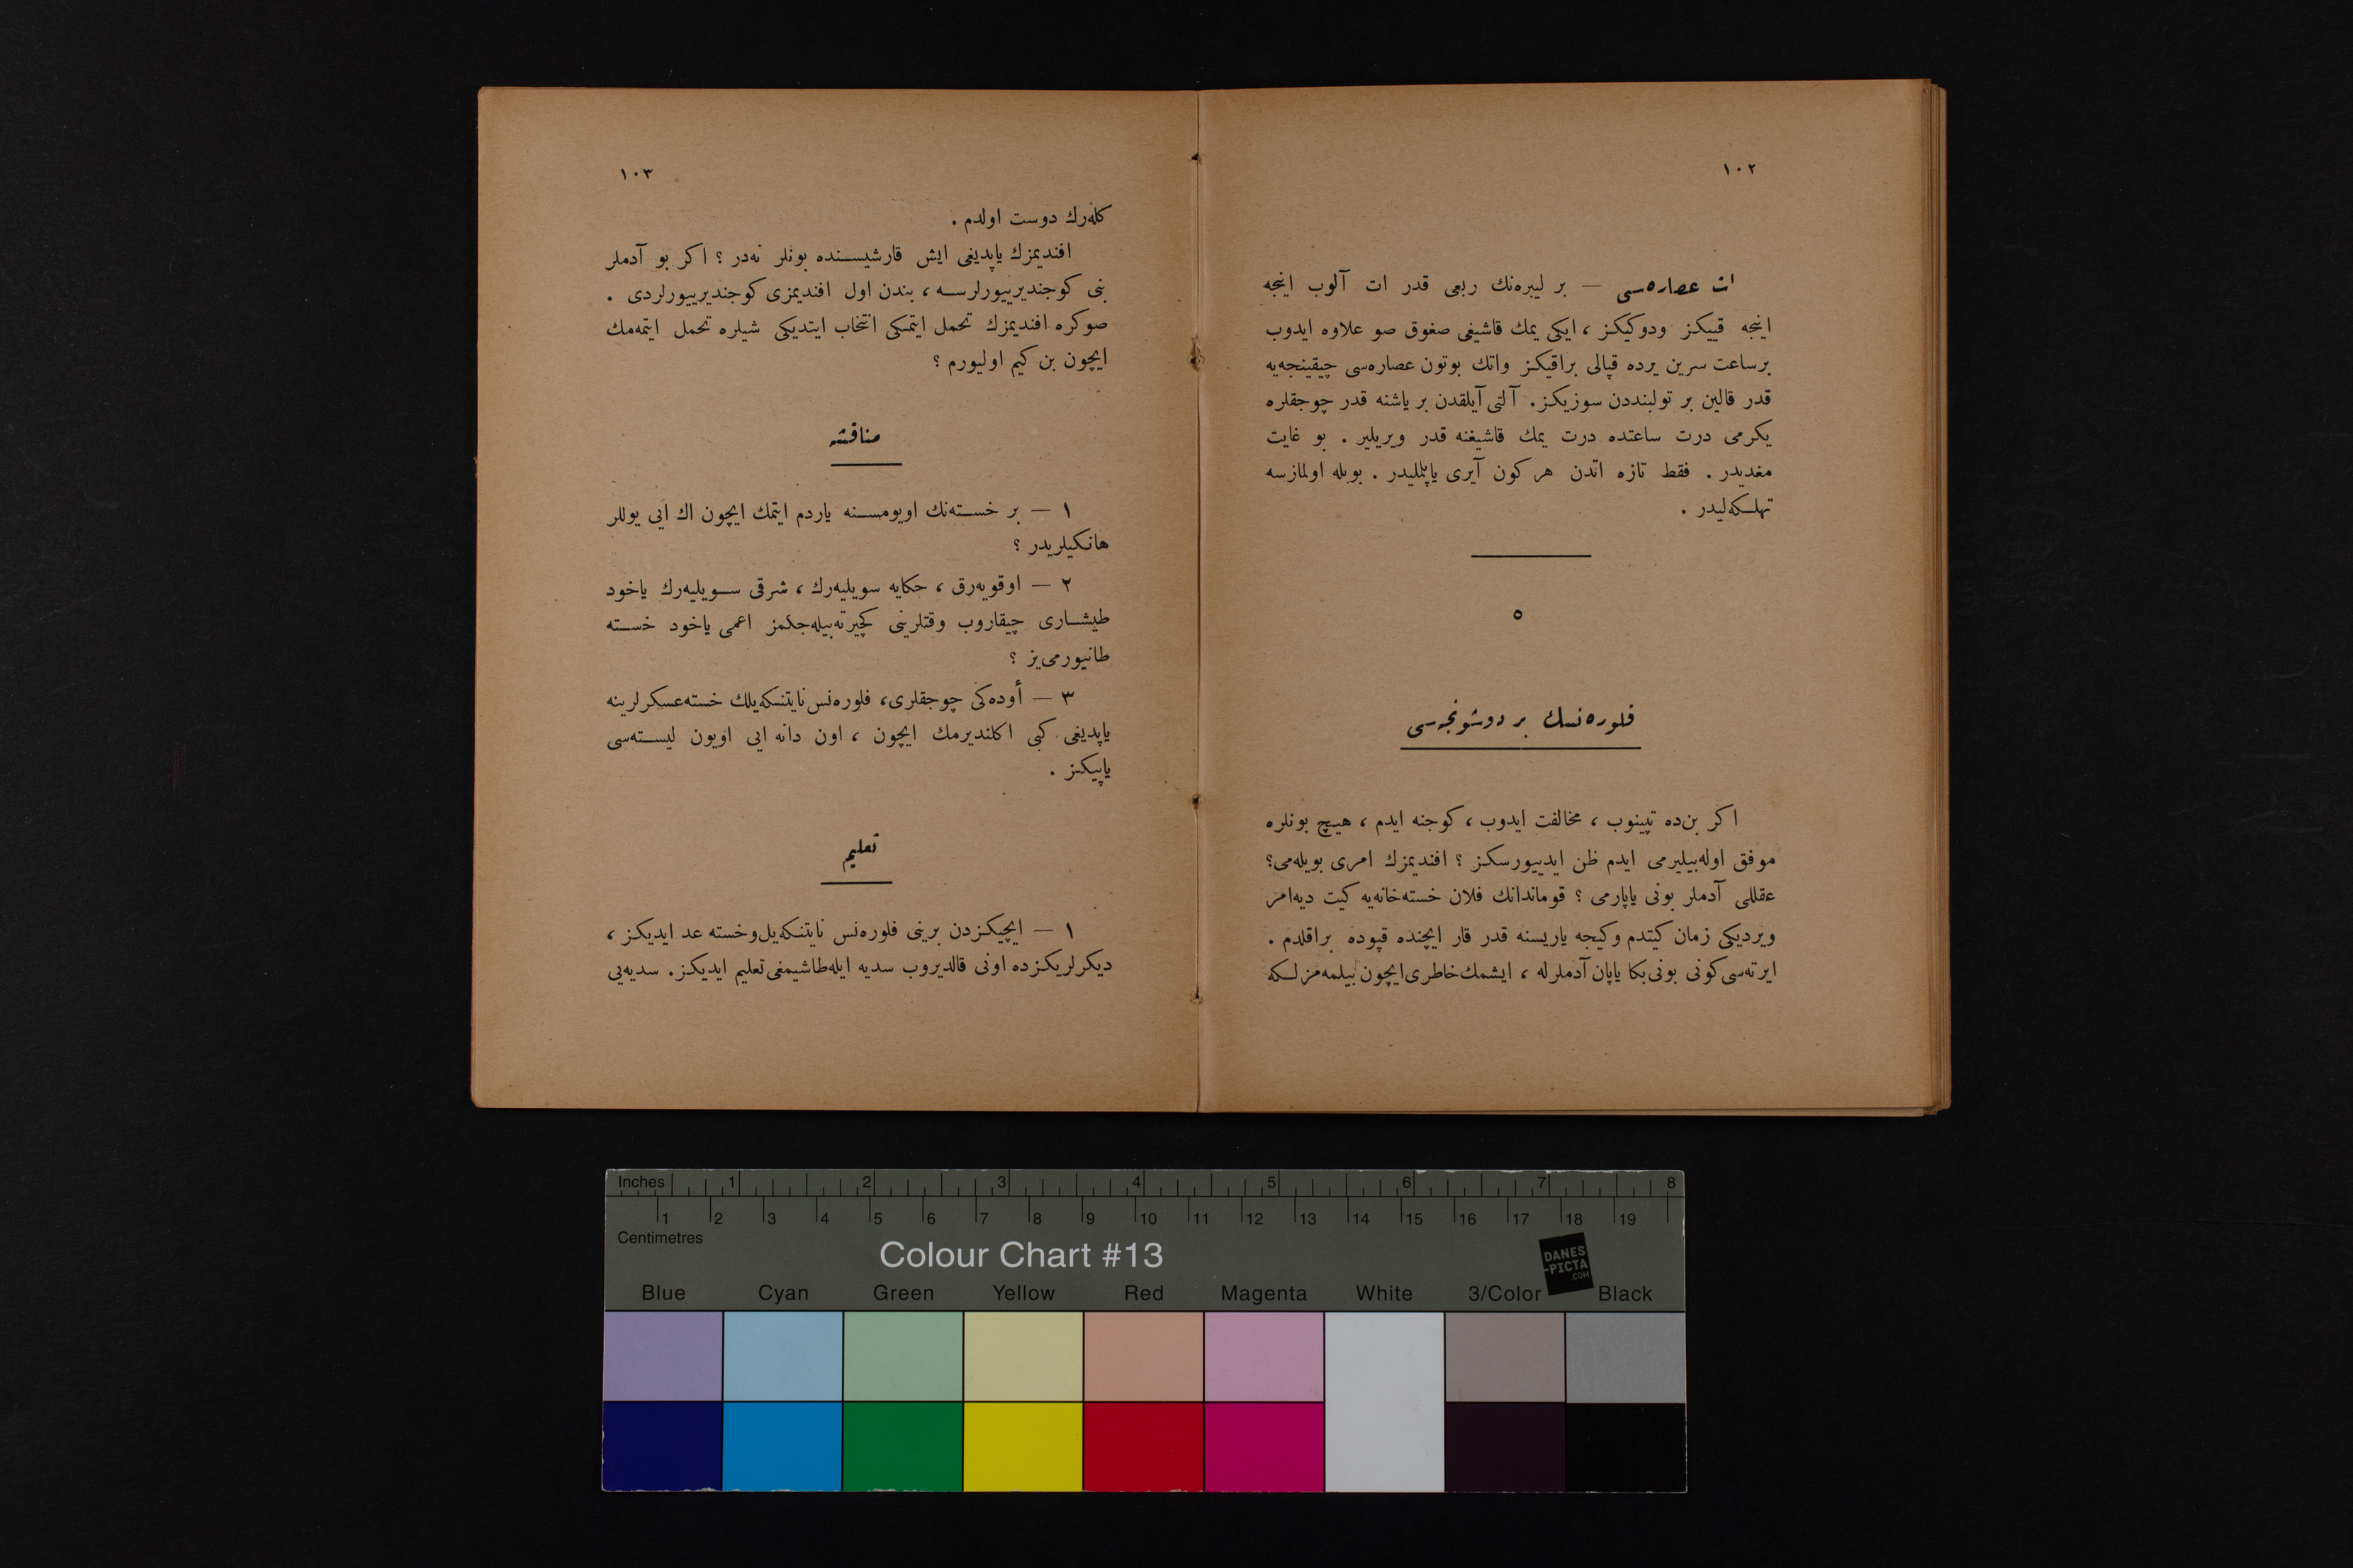 ١٠٢
ات عصاره‌سی — بر لیبره‌نك ربعی قدر ات آلوب اینجه
اینجه قیيكز ودوكیكز ، ایكی یمك قاشیغی صغوق صو علاوه ایدوب
برساعت سرین یرده قپالی براقیكز واتك بوتون عصاره‌سی چیقینجه‌یه
قدر قالین بر تولبنددن سوزیكز. آلتی آیلقدن بر یاشنه قدر چوجقلره
یكرمی درت ساعتده درت یمك قاشیغنه قدر ویریلیر . بو غایت
مغدیدر . فقط تازه اتدن هر كون آیری یاپیلملیدر . بویله اولمازسه
تهلكه‌لیدر .
٥
فلوره‌نسك بر دوشونجه‌سی
اكر بن‌ده تپینوب ، مخالفت ایدوب ، كوجنه ایدم ، هیچ بونلره
موفق اوله‌بیلیرمی ایدم ظن ایدییورسكز ؟ افندیمزك امری بویله‌می؟
عقللی آدملر بونی یاپارمی ؟ قوماندانك فلان خسته‌خانه‌یه كیت دیه‌امر
ویردیكی زمان كیتدم وكیجه یاریسنه قدر قار ایچنده قپوده براقلدم .
ایرته‌سی كونی بونی بكا یاپان آدملرله ، ایشمك خاطری ایچون بیلمه‌مزلكه
١٠٣
كله‌رك دوست اولدم .
افندیمزك یاپدیغی ایش قارشیسنده بونلر نه‌در ؟ اكر بو آدملر
بنی كوجندیرییورلرسه ، بندن اول افندیمزی كوجندیرییورلردی .
صوكره افندیمزك تحمل ایتمكی انتخاب ایتدیكی شیلره تحمل ایتمه‌مك
ایچون بن كیم اولیورم ؟
مناقشه
١ — بر خسته‌نك اویومسنه یاردم ایتمك ایچون اك ایی یوللر
هانكیلریدر ؟
٢ — اوقویه‌رق ، حكایه سویلیه‌رك ، شرقی سویلیه‌رك یاخود
طیشاری چیقاروب وقتلرینی كچیرته‌بیله‌جكمز اعمی یاخود خسته
طانیورمی‌یز ؟
٣ — أوده‌كی چوجقلری، فلوره‌نس نایتنكه‌یلك خسته عسكرلرینه
یاپدیغی كبی اكلندیرمك ایچون ، اون دانه ایی اویون لیسته‌سی
یاپیكز .
تعلیم
١ — ایچیكزدن برینی فلوره‌نس نایتنكه‌یل وخسته عد ایدیكز ،
دیكرلریكزده اونی قالدیروب سدیه ایله طاشیمغی تعلیم ایدیكز. سدیه‌یی
Inches 1 2 3 4 5 6 7 8
1 2 3 4 5 6 7 8 9 10 11 12 13 14 15 16 17 18 19
Centimetres
Colour Chart #13
DANES
-PICTA
.COM
Blue Cyan Green Yellow Red Magenta White 3/Color Black